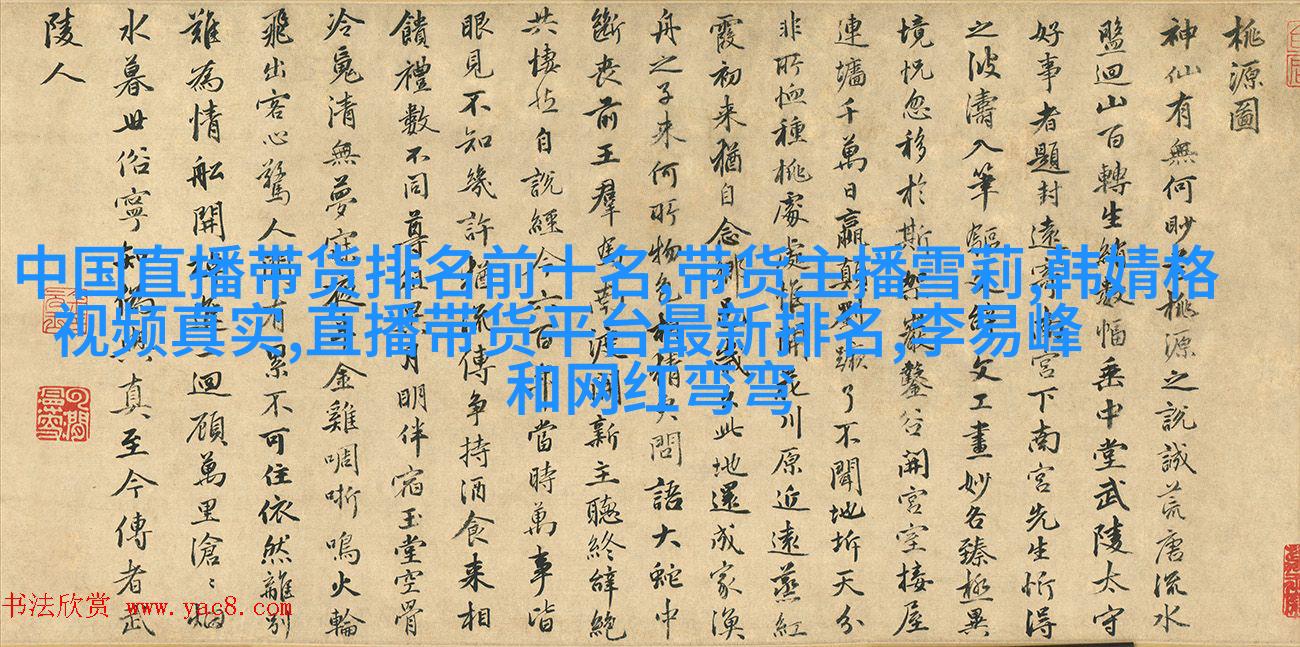 桃源圖
神仙有無何眇芒桃源之說誠荒唐流水
盤迴山百轉生綃數幅垂中堂武陵太守
好事者題封遠寄南宮下南宮先生忻得
之波濤入筆驅文辭文工畫妙各臻極異
境恍忽移於斯架巖鑿谷開宮室接屋
連墻千萬日嬴顛劉蹶了不聞地坼天分
非所恤種桃處處惟開花川原近遠蒸紅
霞初來猶自念鄉邑歲久此地還成家漁
舟之子來何所物色相猜更問語大蛇中
斷喪前王羣馬南渡開新主聽終辭絕
共悽然自說經今六百年當時萬事皆
眼見不知幾許猶流傳爭持酒食來相
饋禮數不同尊俎異月明伴宿玉堂空骨
冷魂清無夢寐夜半金雞啁哳鳴火輪
飛出客心驚人間有累不可住依然離別
難為情船開棹進一迴顧萬里滄〻烟
水暮世俗寧知偽與真至今傳者武
陵人
中国直播带货排名前十名,带货主播雪莉,韩婧格
视频真实,直播带货平台最新排名,李易峰
和网红弯弯
书法欣赏 www.yac8.com